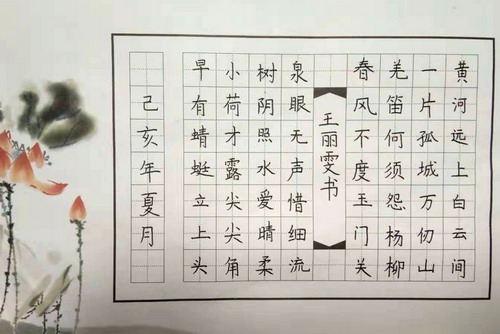 黄河远上白云间
一片孤城万仞山
羌笛何须怨杨柳
春风不度玉门关
王丽雯书
泉眼无声惜细流
树阴照水爱晴柔
小荷才露尖尖角
早有蜻蜓立上头
己亥年夏月